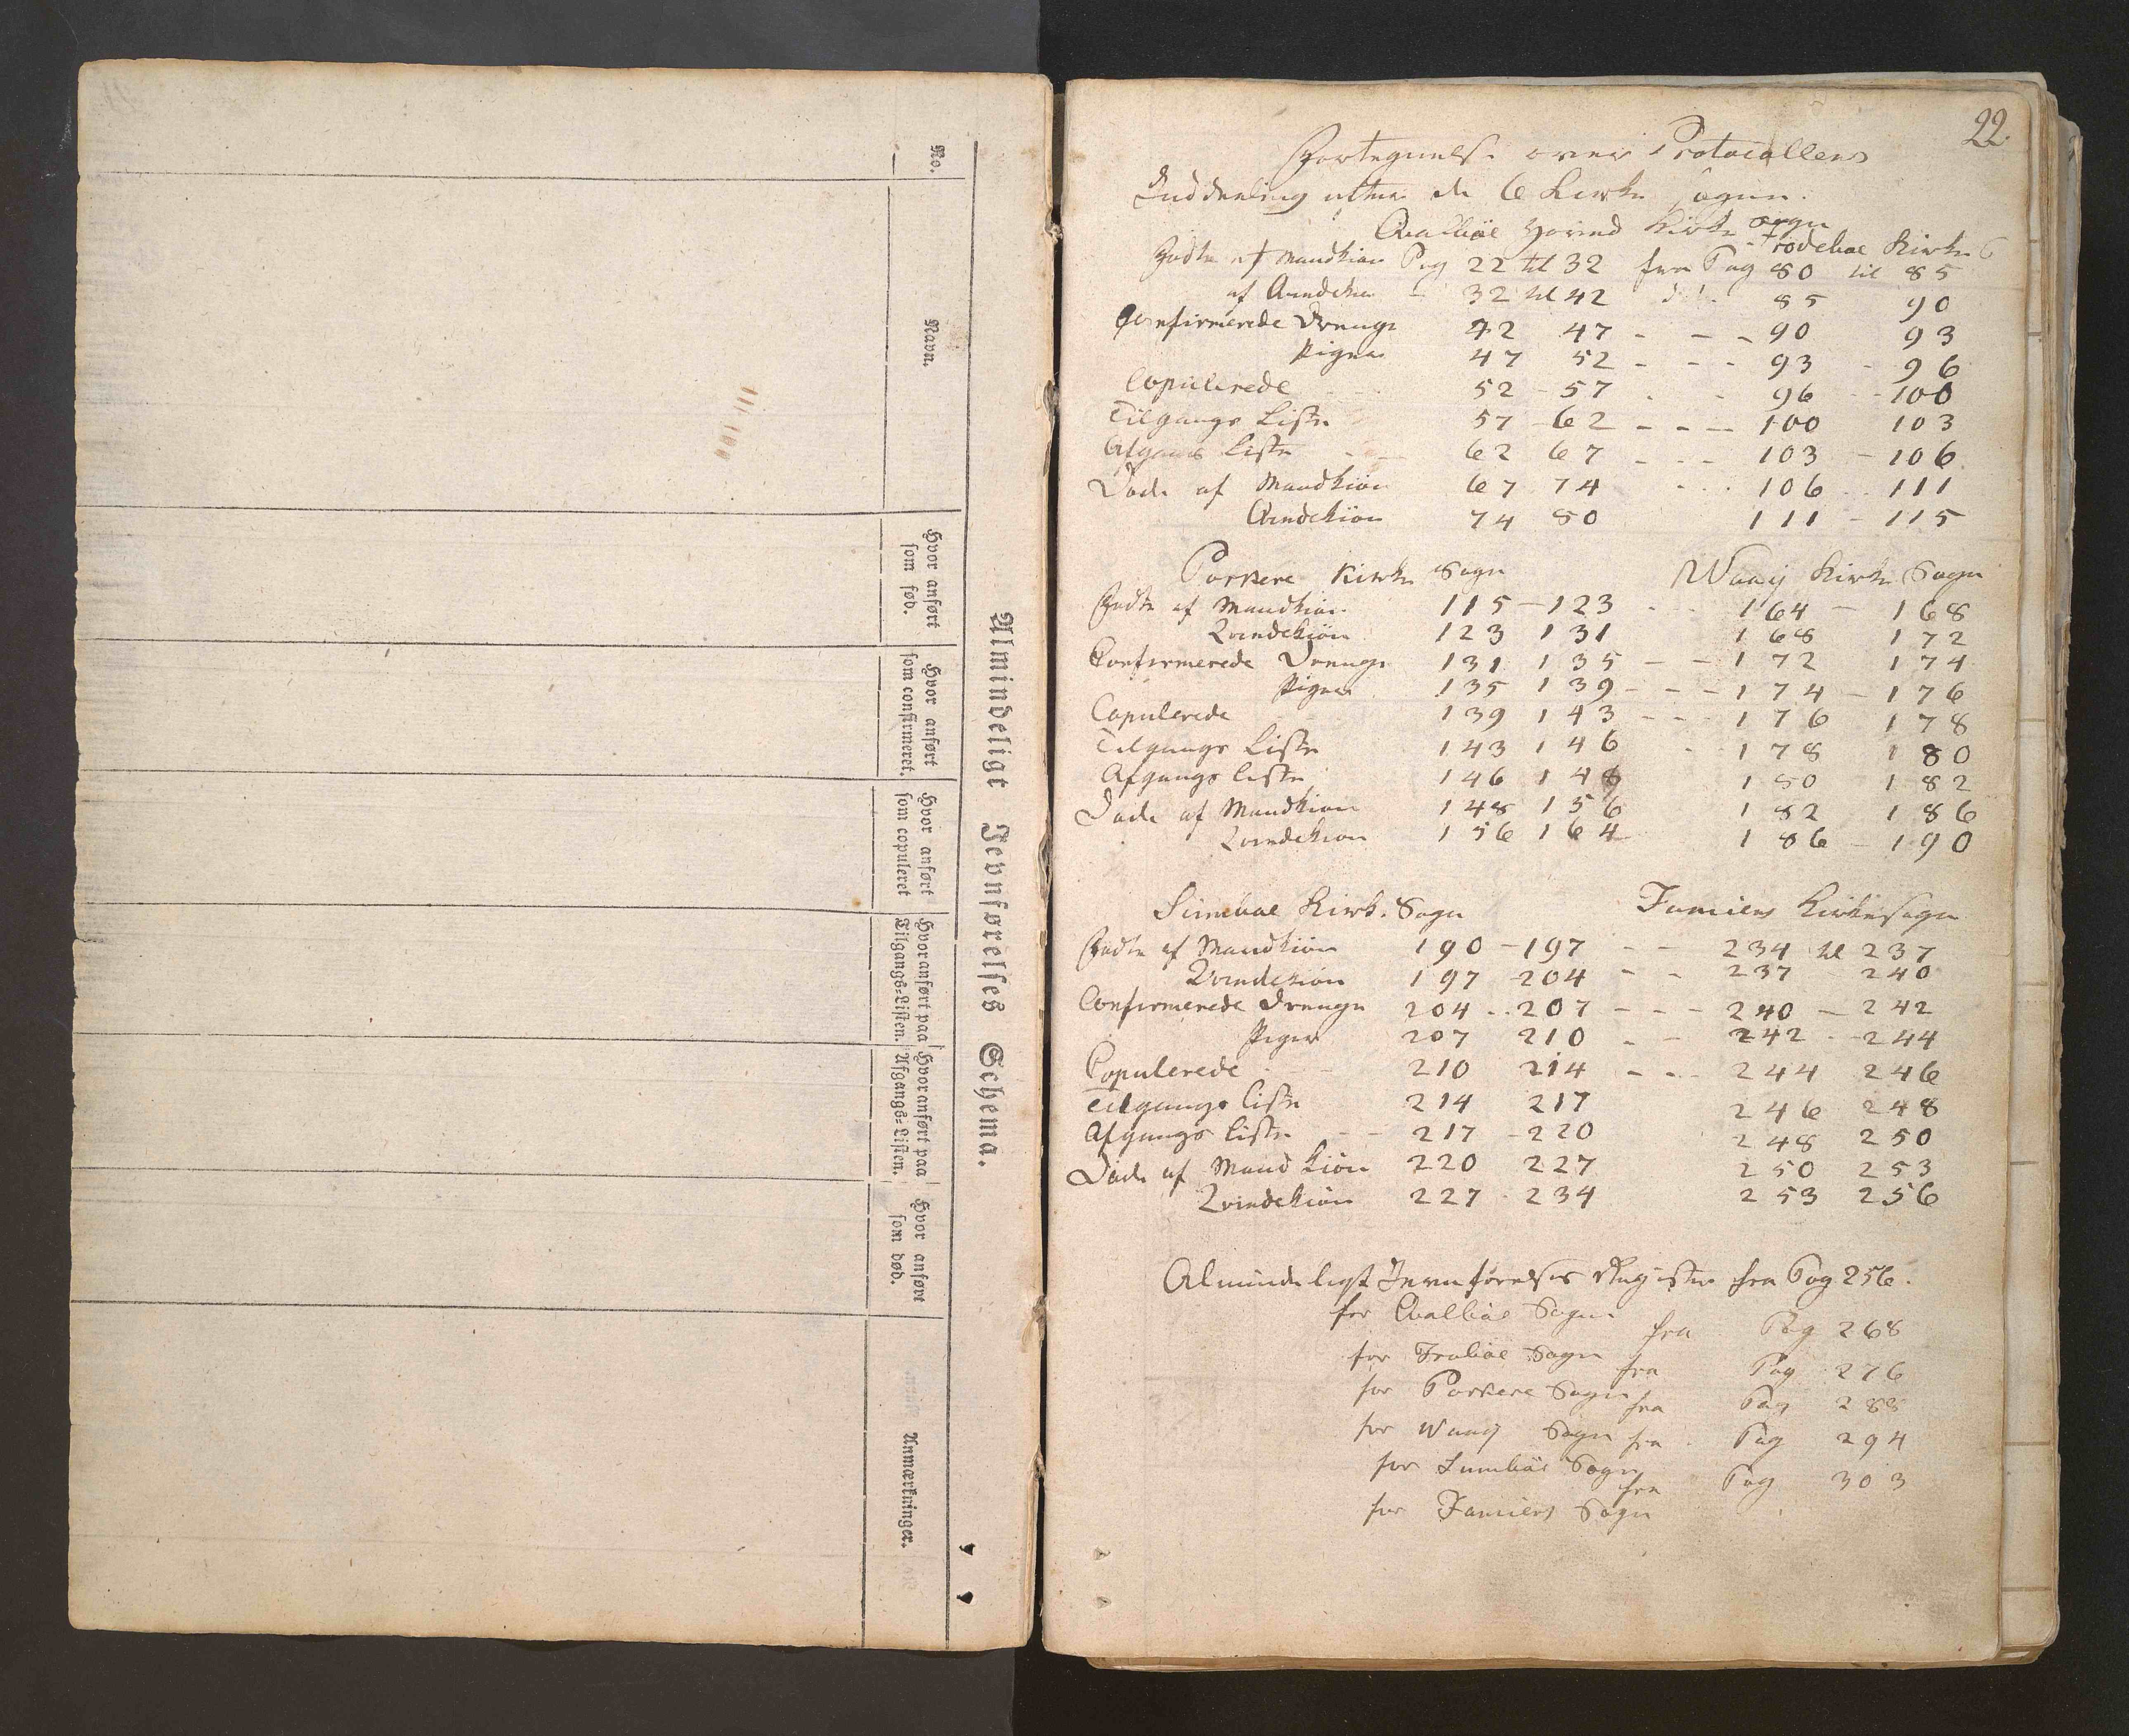 Almindeligt Jevnførelses Schema.
No.
Navn.
Hvor anført som fød.
Hvor anført som confirmeret.
Hvor anført som copuleret
Hvor anført paa Tilgangs-Listen.
Hvor anført paa Afgangs-Listen.
Hvor anført som død.
Anmærkninger.
22.
Fortegnelse over Protocollens
Inddeling efter de 6 Kirke Sogne.
Qvalböe Hoved Kirke Sogn
Frodeboe Kirke S
Fødte af Mandkiön Pag 22 til 32 fra Pag 80 til 85
af Qvindekiön - 32 til 42 85 90
Confirmerede Drenge 42 47 - - - 90 93
Piger 47 52 - - - 93 - 96
Copulerede 52 - 57 - - 96 - 100
Tilgangs Liste 57 - 62 - - - 100 103
Afgangs Liste 62 67 - - - 103 - 106
Døde af Mandkiön 67 74 - - - 106 - 111
Qvindekiön 74 80 111 - 115
Porkere Kirke Sogn Waaij Kirke Sogn
Fødte af Mandkiön 115 - 123 - - 164 - 168
Qvindekiön 123 131 168 172
Confirmerede Drenge 131 135 - - 172 174
Piger 135 139 - - - 174 - 176
Copulerede 139 143 - - - 176 178
Tilgangs Liste 143 146 - 178 180
Afgangs Liste 146 148 180 182
Døde af Mandkiön 148 156 182 186
Qvindekiön 156 164 186 - 190
Sumböe Kirke Sogn Famiens Kirkesogn
Fødte af Mandkiön 190 - 197 - - 234 til 237
Qvindekiön 197 - 204 - - 237 240
Confirmerede Drenge 204 - 207 - - - 240 - 242
Piger 207 210 - - 242 - 244
Copulerede 210 214 - - - 244 246
Tilgangs Liste 214 217 246 248
Afgangs Liste - - 217 - 220 248 250
Døde af Mandkiön 220 227 250 253
Qvindekiön 227 - 234 253 256
Almindeligt Jevnførelses Register fra Pag 256.
for Qvalböe Sogn
fra Pag 268
for Froböe Sogn
fra Pag 276
for Porkere Sogn
fra Pag 288
for Waaij Sogn
fra Pag 294
for Sumböe Sogn
fra Pag 303
for Famiens Sogn